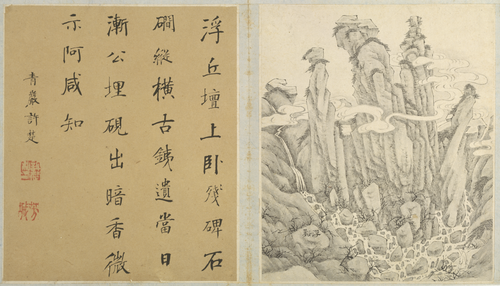 浮丘壇上卧殘碑石
磵縱橫古銕遺當日
漸公埋硯出暗香微
示阿咸知
青巖許楚